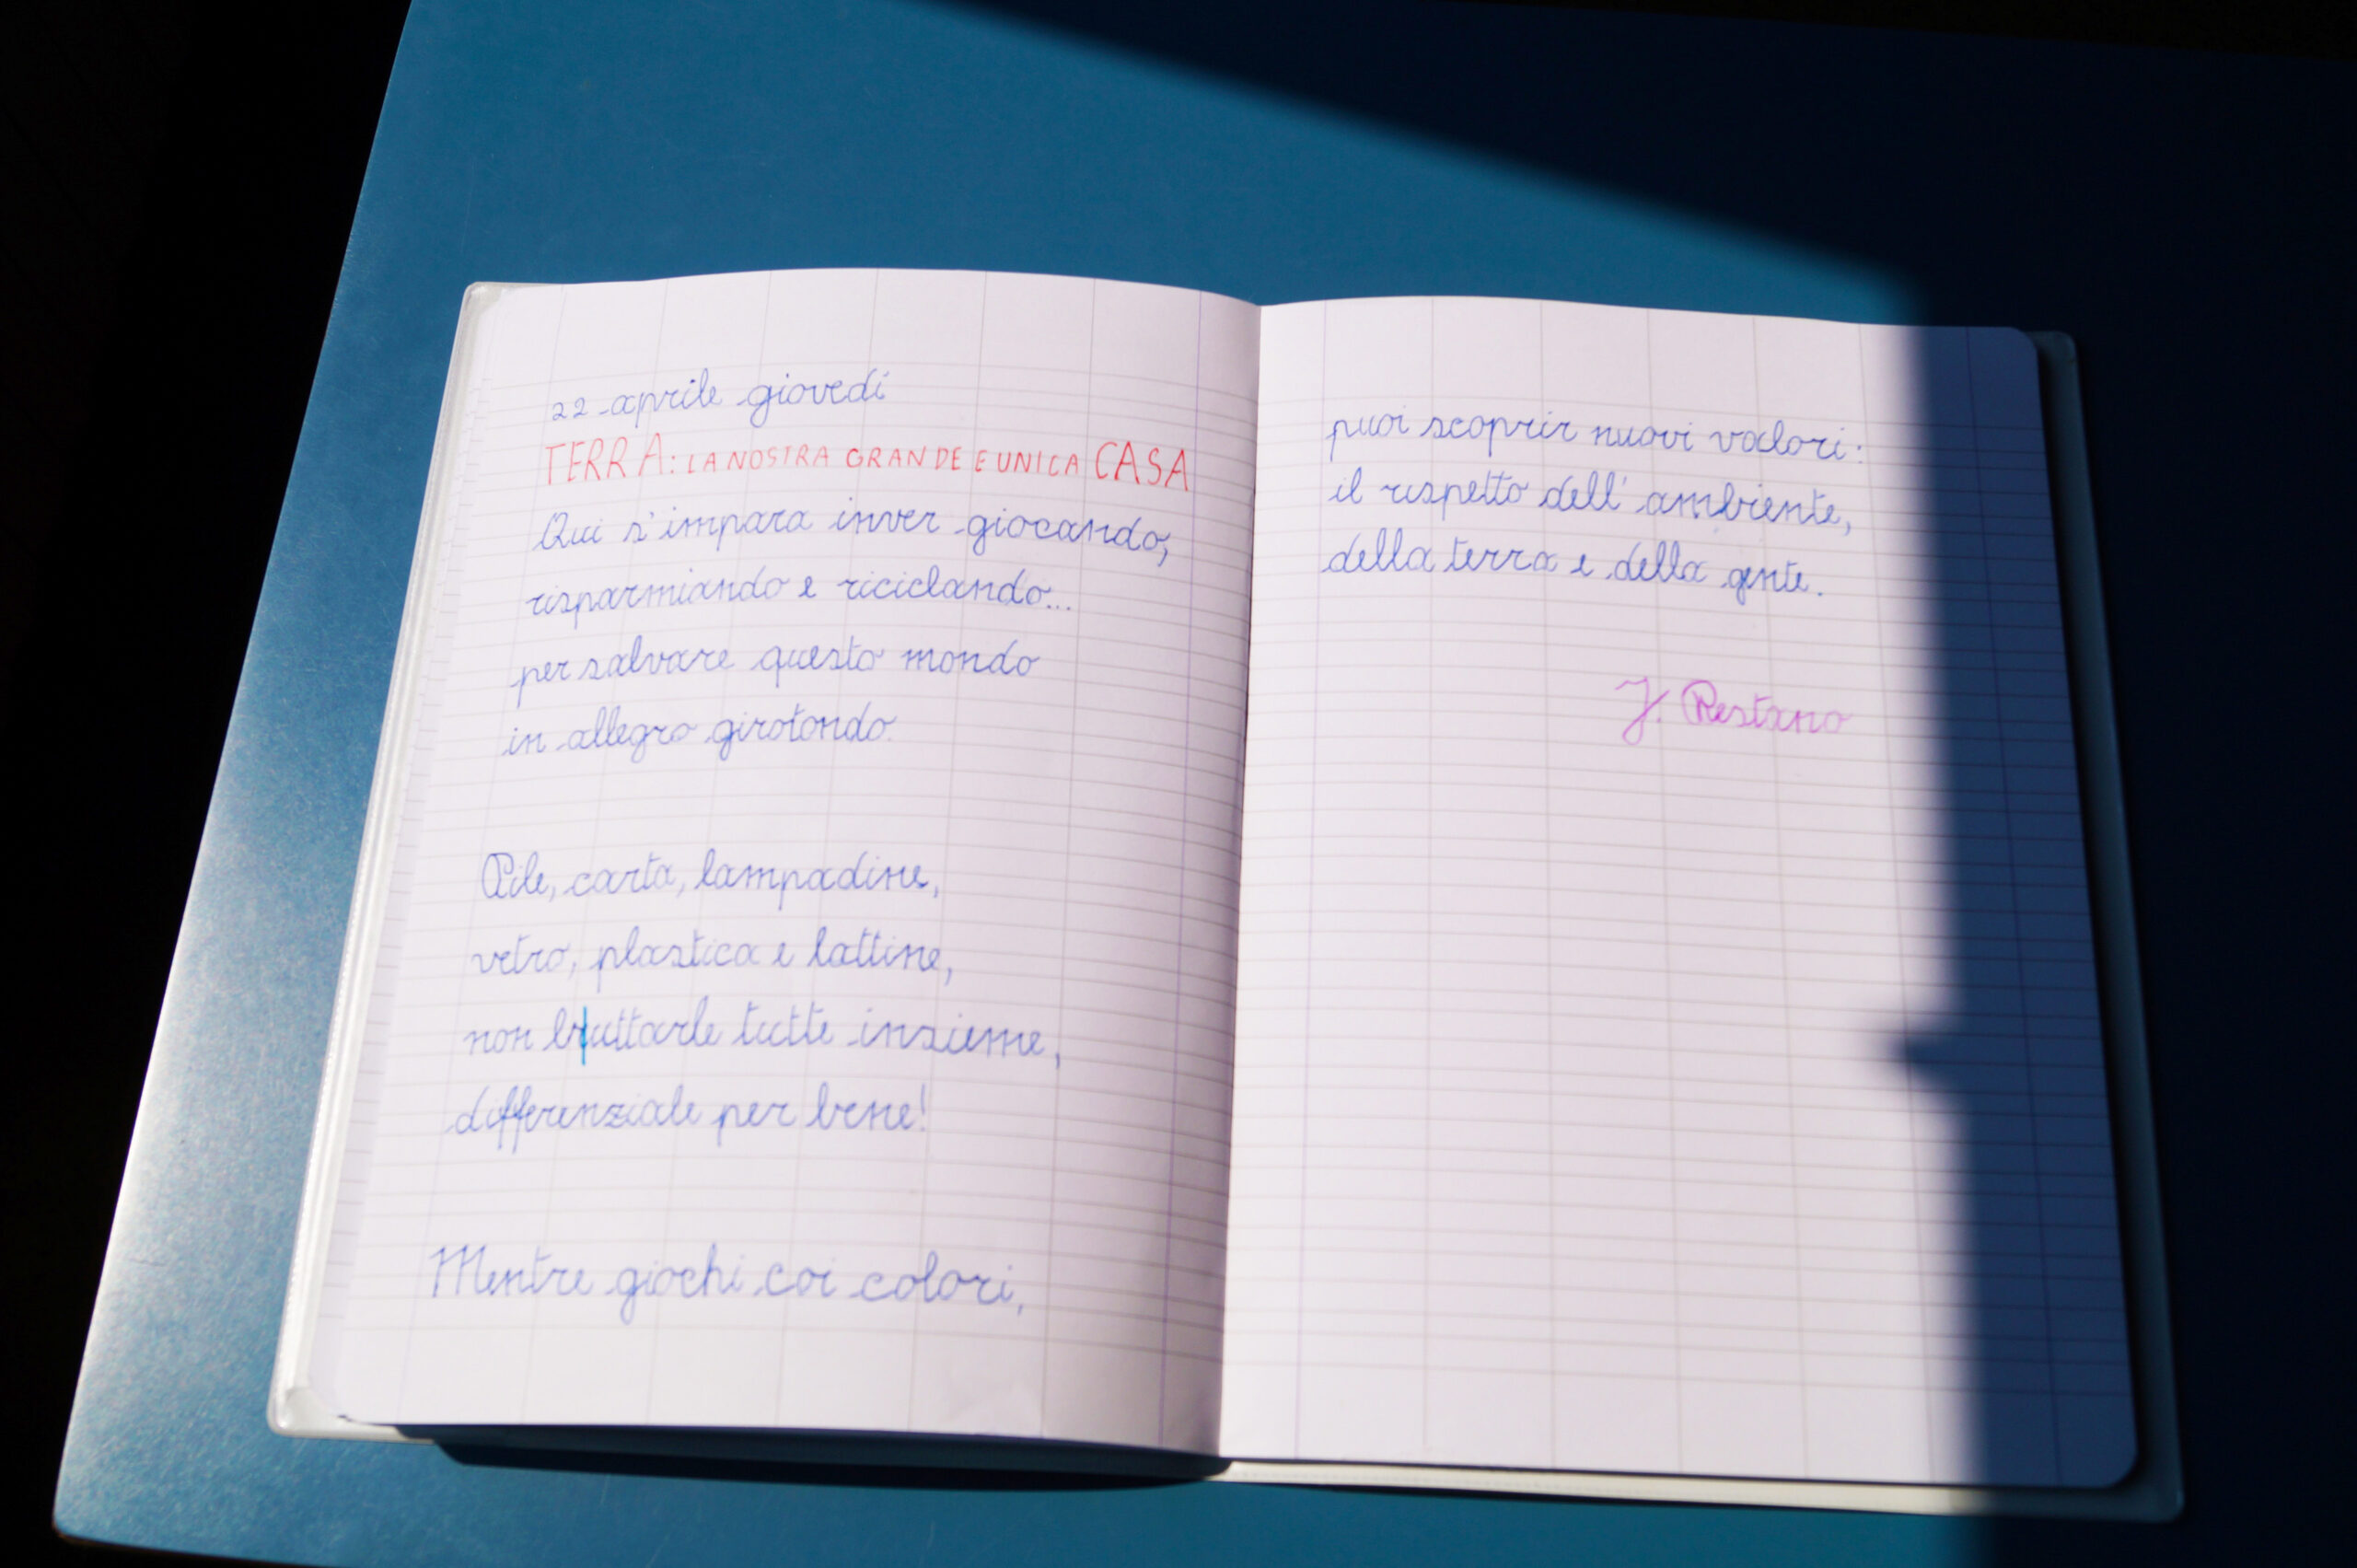 22 aprile giovedí
TERRA: LA NOSTRA GRANDE E UNICA CASA
Qui s'impara inver giocando,
risparmiando e riciclando...
per salvare questo mondo
in allegro girotondo.
Pile, carta, lampadine,
vetro, plastica e lattine,
non bruttarle tutte insieme,
differenziale per bene!
Mentre giochi coi colori,
puoi scoprir nuovi valori:
il rispetto dell'ambiente,
della terra e della gente.
J. Restano